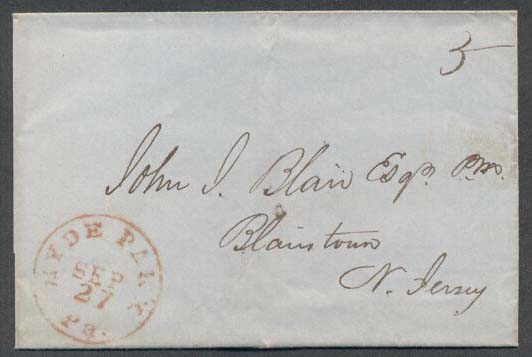 5
John J. Blair Esqr. P.M.
Blairstown
N. Jersey
HYDE PARK
SEP
27
Pa.